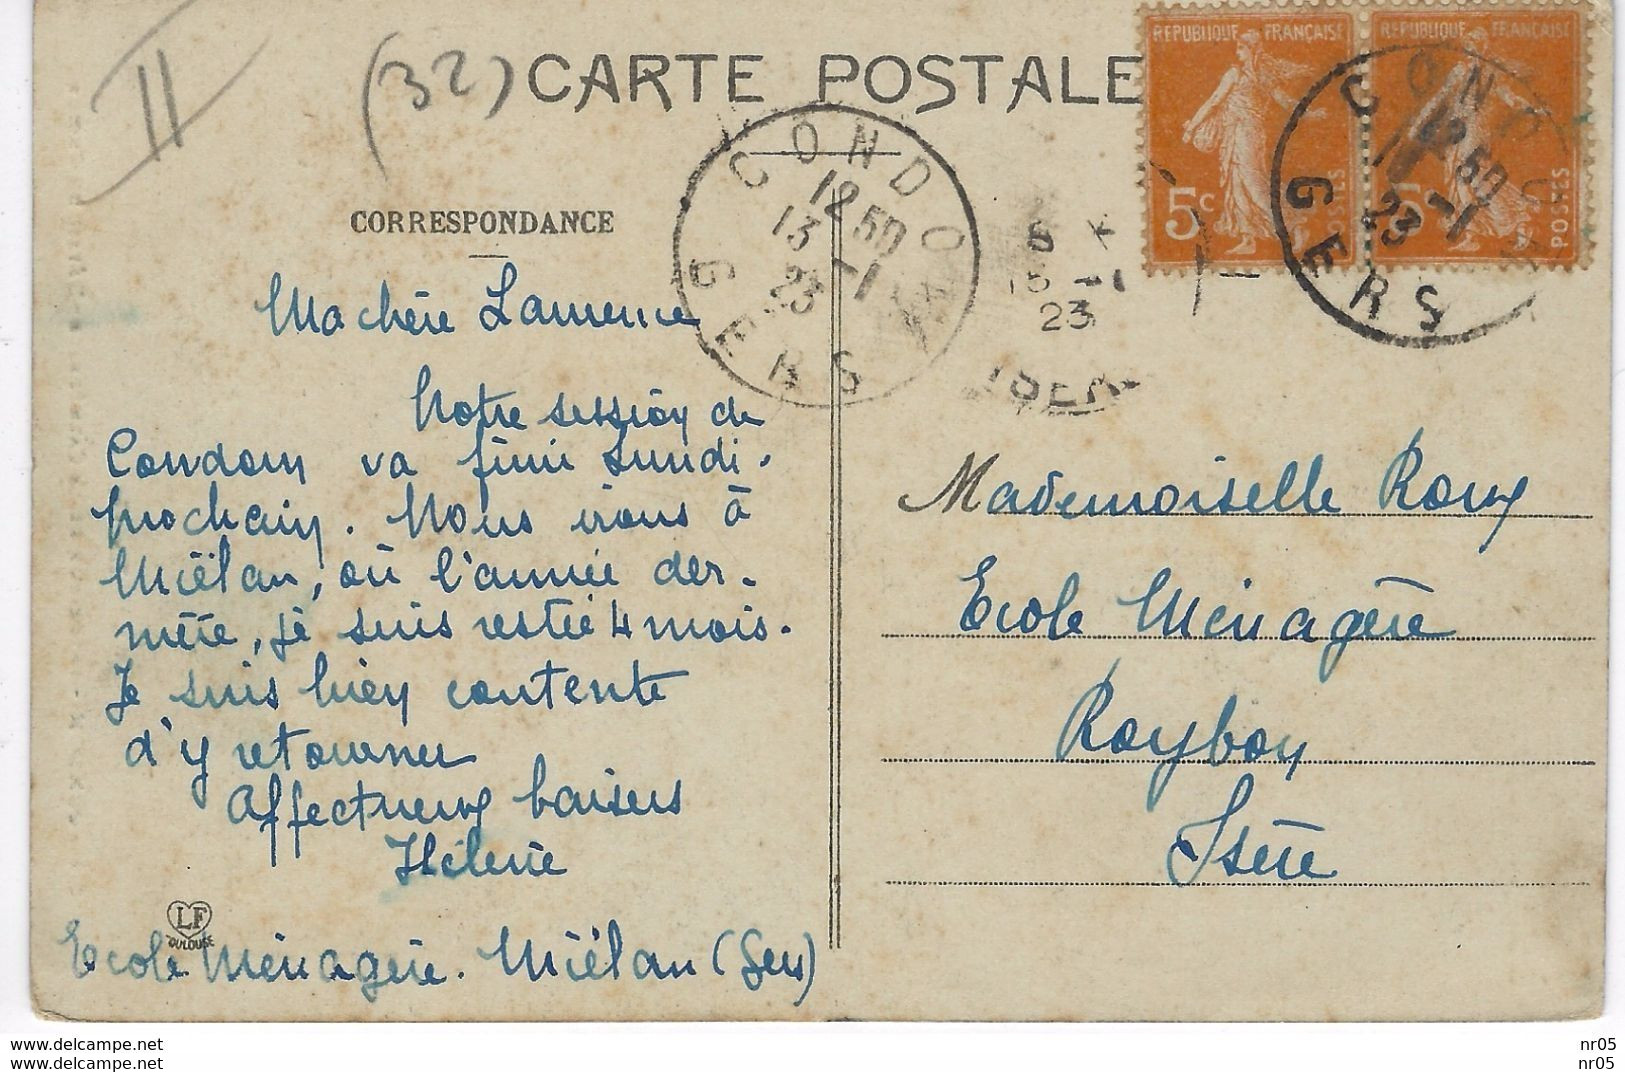 II
(32)
CARTE POSTALE
REPUBLIQUE FRANÇAISE
5c
POSTES
REPUBLIQUE FRANÇAISE
5c
POSTES
CONDOM
12 50
13 -1
23
GERS
CONDOM
12 50
13 -1
23
GERS
15 -1
23
ISERE
CORRESPONDANCE
Ma chère Laurence
Notre session de
Condom va finir Lundi.
prochain. Nous irons à
Miëlan, où l'année der-
nière, je suis restée 4 mois.
Je suis bien contente
d'y retourner
Affectueux baisers
Hélène
LF
TOULOUSE
Ecole Ménagère. Miëlan (Gers)
Mademoiselle Roux
Ecole Ménagère
Roybon
Isère
www.delcampe.net
www.delcampe.net
nr05
nr05